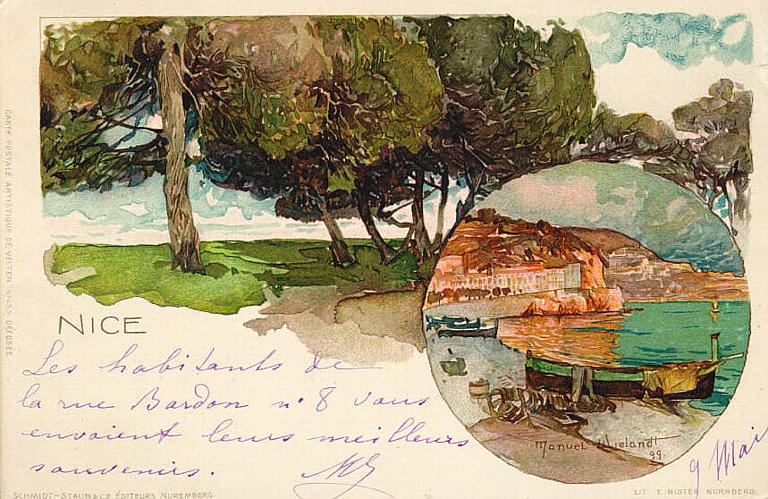 NICE
Les habitants de
la rue Bardon nº 8 vous
envoient leurs meilleurs
souvenirs.
9 Mai
Manuel Wielandt
99.
CARTE POSTALE ARTISTIQUE DE VELTEN DEPOSÉE
SCHMIDT-STAUB & Cº ÉDITEURS NUREMBERG
LIT. E. NISTER NURNBERG